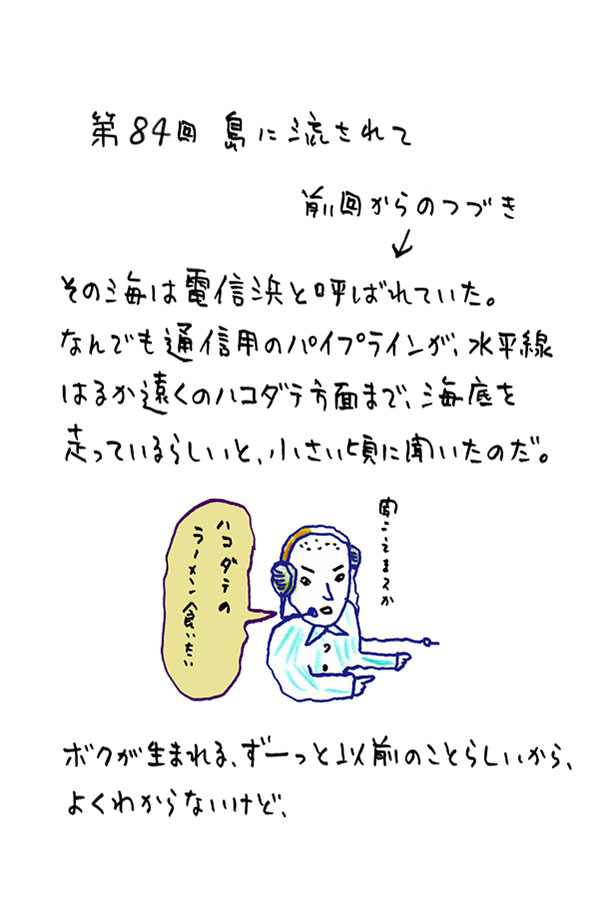 第84回 島に流されて
前回からのつづき
↓
その海は電信浜と呼ばれていた。
なんでも通信用のパイプラインが、水平線
はるか遠くのハコダテ方面まで、海底を
走っているらしいと、小さい頃に聞いたのだ。
聞こえますか
ハコダテの
ラーメン食いたい
ボクが生まれる、ずーっと以前のことらしいから、
よくわからないけど、